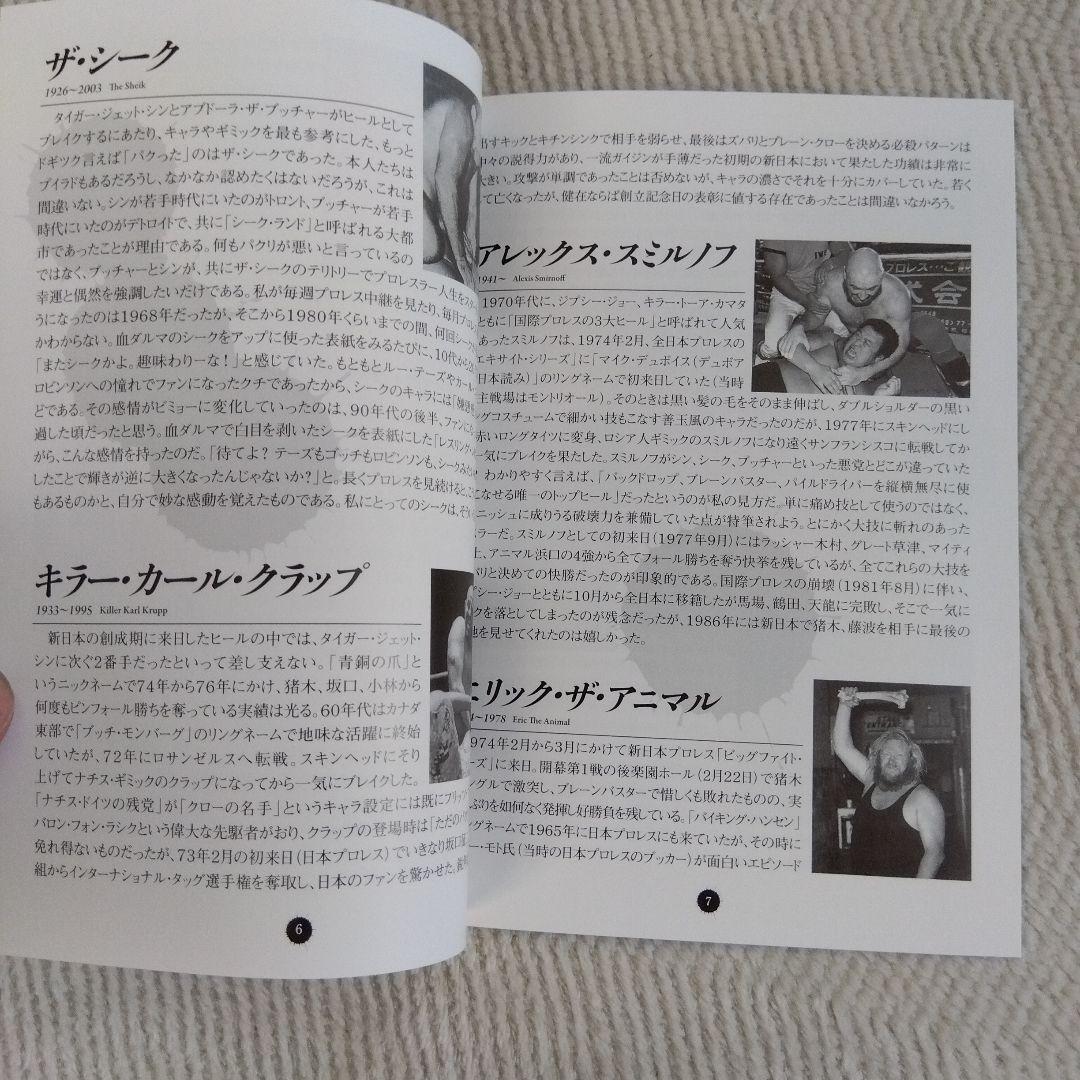 ザ・シーク
1926～2003 The Sheik
タイガー・ジェット・シンとアブドーラ・ザ・ブッチャーがヒールとして
ブレイクするにあたり、キャラやギミックを最も参考にした、もっと
ドギツク言えば「パクった」のはザ・シークであった。本人たちは
プライドもあるだろうし、なかなか認めたくはないだろうが、これは
間違いない。シンが若手時代にいたのがトロント、ブッチャーが若手
時代にいたのがデトロイトで、共に「シーク・ランド」と呼ばれる大都
市であったことが理由である。何もパクリが悪いと言っているの
ではなく、ブッチャーとシンが、共にザ・シークのテリトリーでプロレスラー人生をスター
幸運と偶然を強調したいだけである。私が毎週プロレス中継を見たり、毎月プロレ
うになったのは1968年だったが、そこから1980年くらいまでの間、何回シーク
かわからない。血ダルマのシークをアップに使った表紙をみるたびに、10代から20
「またシークかよ。趣味わりーな！」と感じていた。もともとルー・テーズやカール・
ロビンソンへの憧れでファンになったクチであったから、シークのキャラには「嫌悪
どである。その感情がビミョーに変化していったのは、90年代の後半、ファンに
過した頃だったと思う。血ダルマで白目を剥いたシークを表紙にした「レスリング
がら、こんな感情を持ったのだ。「待てよ？ テーズもゴッチもロビンソンも、シークみた
したことで輝きが逆に大きくなったんじゃないか？」と。長くプロレスを見続けると、こ
もあるものかと、自分で妙な感動を覚えたものである。私にとってのシークは、そ
キラー・カール・クラップ
1933～1995 Killer Karl Krupp
新日本の創成期に来日したヒールの中では、タイガー・ジェット・
シンに次ぐ2番手だったといって差し支えない。「青銅の爪」と
いうニックネームで74年から76年にかけ、猪木、坂口、小林から
何度もピンフォール勝ちを奪っている実績は光る。60年代はカナダ
東部で「ブッチ・モンバーグ」のリングネームで地味な活躍に終始
していたが、72年にロサンゼルスへ転戦。スキンヘッドにそり
上げてナチス・ギミックのクラップになってから一気にブレイクした。
「ナチス・ドイツの残党」が「クローの名手」というキャラ設定には既にフリッツ
バロン・フォン・ラシクという偉大な先駆者がおり、クラップの登場時は「ただのパク
免れ得ないものだったが、73年2月の初来日（日本プロレス）でいきなり坂口
組からインターナショナル・タッグ選手権を奪取し、日本のファンを驚かせた。
6
出すキックとキチンシンクで相手を弱らせ、最後はズバリとブレーン・クローを決める必殺パターンは
中々の説得力があり、一流ガイジンが手薄だった初期の新日本において果たした功績は非常に
大きい。攻撃が単調であったことは否めないが、キャラの濃さでそれを十分にカバーしていた。若く
して亡くなったが、健在ならば創立記念日の表彰に値する存在であったことは間違いなかろう。
アレックス・スミルノフ
1941～ Alexis Smirnoff
1970年代に、ジプシー・ジョー、キラー・トーア・カマタ
ともに「国際プロレスの3大ヒール」と呼ばれて人気
あったスミルノフは、1974年2月、全日本プロレスの
エキサイト・シリーズ」に「マイク・デュボイス（デュボア
日本読み）」のリングネームで初来日していた（当時
主戦場はモントリオール）。そのときは黒い髪の毛をそのまま伸ばし、ダブルショルダーの黒い
グコスチュームで細かい技もこなす善玉風のキャラだったのだが、1977年にスキンヘッドにし
赤いロングタイツに変身、ロシア人ギミックのスミルノフになり遠くサンフランシスコに転戦してか
一気にブレイクを果たした。スミルノフがシン、シーク、ブッチャーといった悪党とどこが違っていた
わかりやすく言えば、「バックドロップ、ブレーンバスター、パイルドライバーを縦横無尽に使
こなせる唯一のトップヒール」だったというのが私の見方だ。単に痛め技として使うのではなく、
ニッシュに成りうる破壊力を兼備していた点が特筆されよう。とにかく大技に斬れのあった
スラーだ。スミルノフとしての初来日（1977年9月）にはラッシャー木村、グレート草津、マイティ
上、アニマル浜口の4強から全てフォール勝ちを奪う快挙を残しているが、全てこれらの大技を
バリと決めての快勝だったのが印象的である。国際プロレスの崩壊（1981年8月）に伴い、
シー・ジョーとともに10月から全日本に移籍したが馬場、鶴田、天龍に完敗し、そこで一気に
クを落としてしまったのが残念だったが、1986年には新日本で猪木、藤波を相手に最後の
地を見せてくれたのは嬉しかった。
エリック・ザ・アニマル
～1978 Eric The Animal
1974年2月から3月にかけて新日本プロレス「ビッグファイト・
ーズ」に来日。開幕第1戦の後楽園ホール（2月22日）で猪木
ングルで激突し、ブレーンバスターで惜しくも敗れたものの、実
ぶりを如何なく発揮し好勝負を残している。「バイキング・ハンセン」
グネームで1965年に日本プロレスにも来ていたが、その時に
ー・モト氏（当時の日本プロレスのブッカー）が面白いエピソード
7